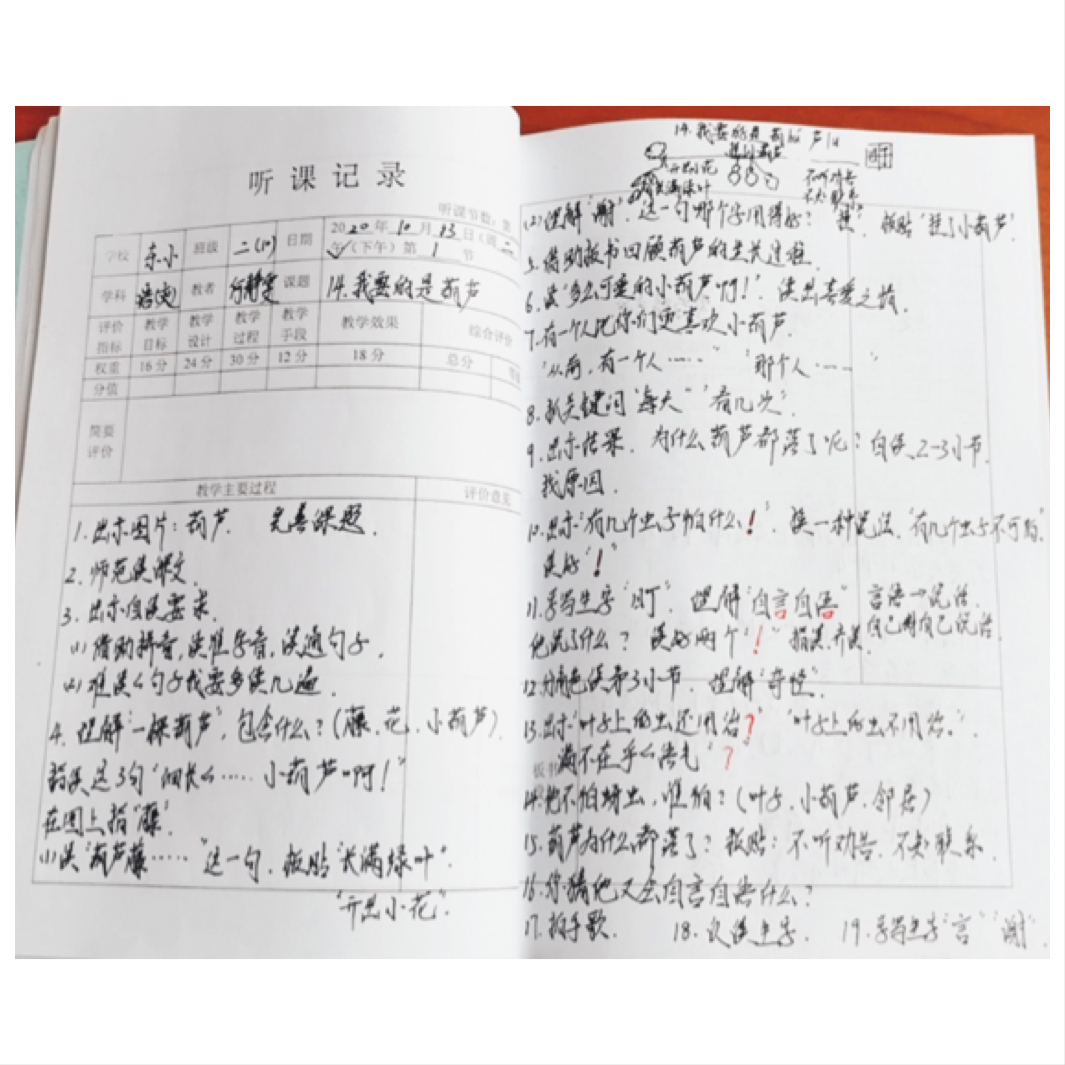 听课记录
听课节数：第
学校 东小 班级 二(10) 日期 2020年10月13日（周二
午（下午）第1节
学科 语文 教者 课题 14.我要的是葫芦
评价指标 教学目标 教学设计 教学过程 教学手段 教学效果 综合评价
权重 16分 24分 30分 12分 18分 总分
分值
简要评价
教学主要过程 评价意见
1.出示图片：葫芦. 完善课题.
2.师范读课文.
3.出示自读要求.
(1)借助拼音,读准字音,读通句子.
(2)难读的句子我要多读几遍.
4.理解"一棵葫芦",包含什么?(藤、花、小葫芦).
指读这3句"细长的……小葫芦啊!"
在图上指"藤".
(1)读"葫芦藤……"这一句,板贴"长满绿叶".
"开出小花".
14.我要的是葫hú芦lu
挂小葫芦
开出小花 不听劝告
长满绿叶 不知联系
(2)理解"谢".这一句哪个字用得好?"挂".板贴"挂了小葫芦".
5.借助板书回顾葫芦的生长过程.
6.读"多么可爱的小葫芦啊!".读出喜爱之情.
7.有一个人比你们更喜欢小葫芦.
"从前,有一个人……" "那个人……"
8.抓关键词"每天""看几次".
9.出示结果.为什么葫芦都落了呢?自读2-3小节.
找原因.
10.出示"有几个虫子怕什么!".换一种说法,"有几个虫子不可怕.
读好"!"
11.书写生字"盯".理解"自言自语" 言语→说话.
他说了什么?读好两个"!"指读.齐读. 自己对自己说话.
12.分角色读第3小节.理解"奇怪".
13.出示"叶子上的虫还用治?" "叶子上的虫不用治."
满不在乎的语气"?"
板书
14.他不怕蚜虫,谁怕?(叶子、小葫芦、邻居)
15.葫芦为什么都落了?板贴:不听劝告.不知联系.
16.你猜他又会自言自语什么?
17.拍手歌. 18.认读生字. 19.书写生字"言""谢".